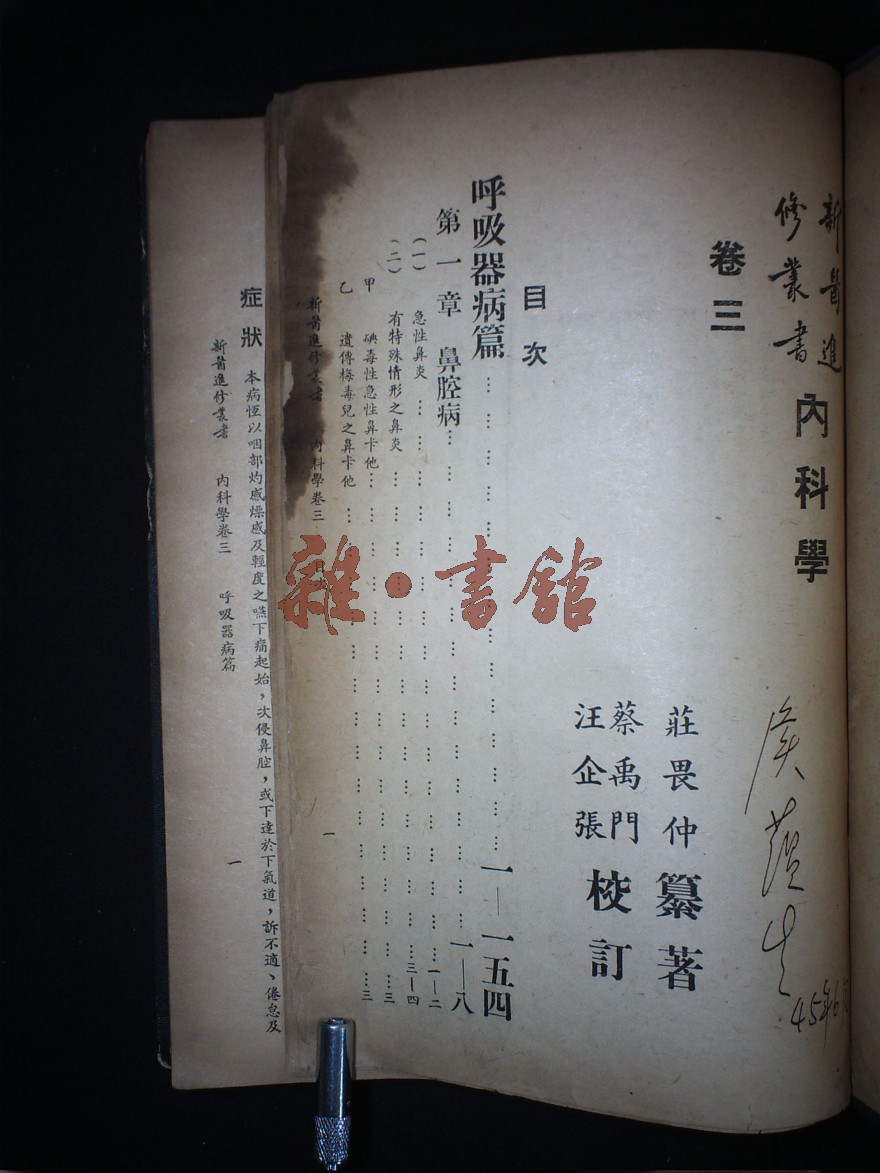 新醫進
修叢書
內科學
卷三
莊畏仲纂著
蔡禹門
汪企張
校訂
目次
呼吸器病篇………………一—一五四
第一章 鼻腔病………………一—八
(一) 急性鼻炎………………一—二
(二) 有特殊情形之鼻炎………………三—四
甲 碘毒性急性鼻卡他………………三
乙 遺傳梅毒兒之鼻卡他………………三
新醫進修叢書 內科學卷三 目次 一
45年6
雜·書館
症狀 本病恆以咽部灼感燥感及輕度之嚥下痛起始，次侵鼻腔，或下達於下氣道，訴不適、倦怠及
新醫進修叢書 內科學卷三 呼吸器病篇 一